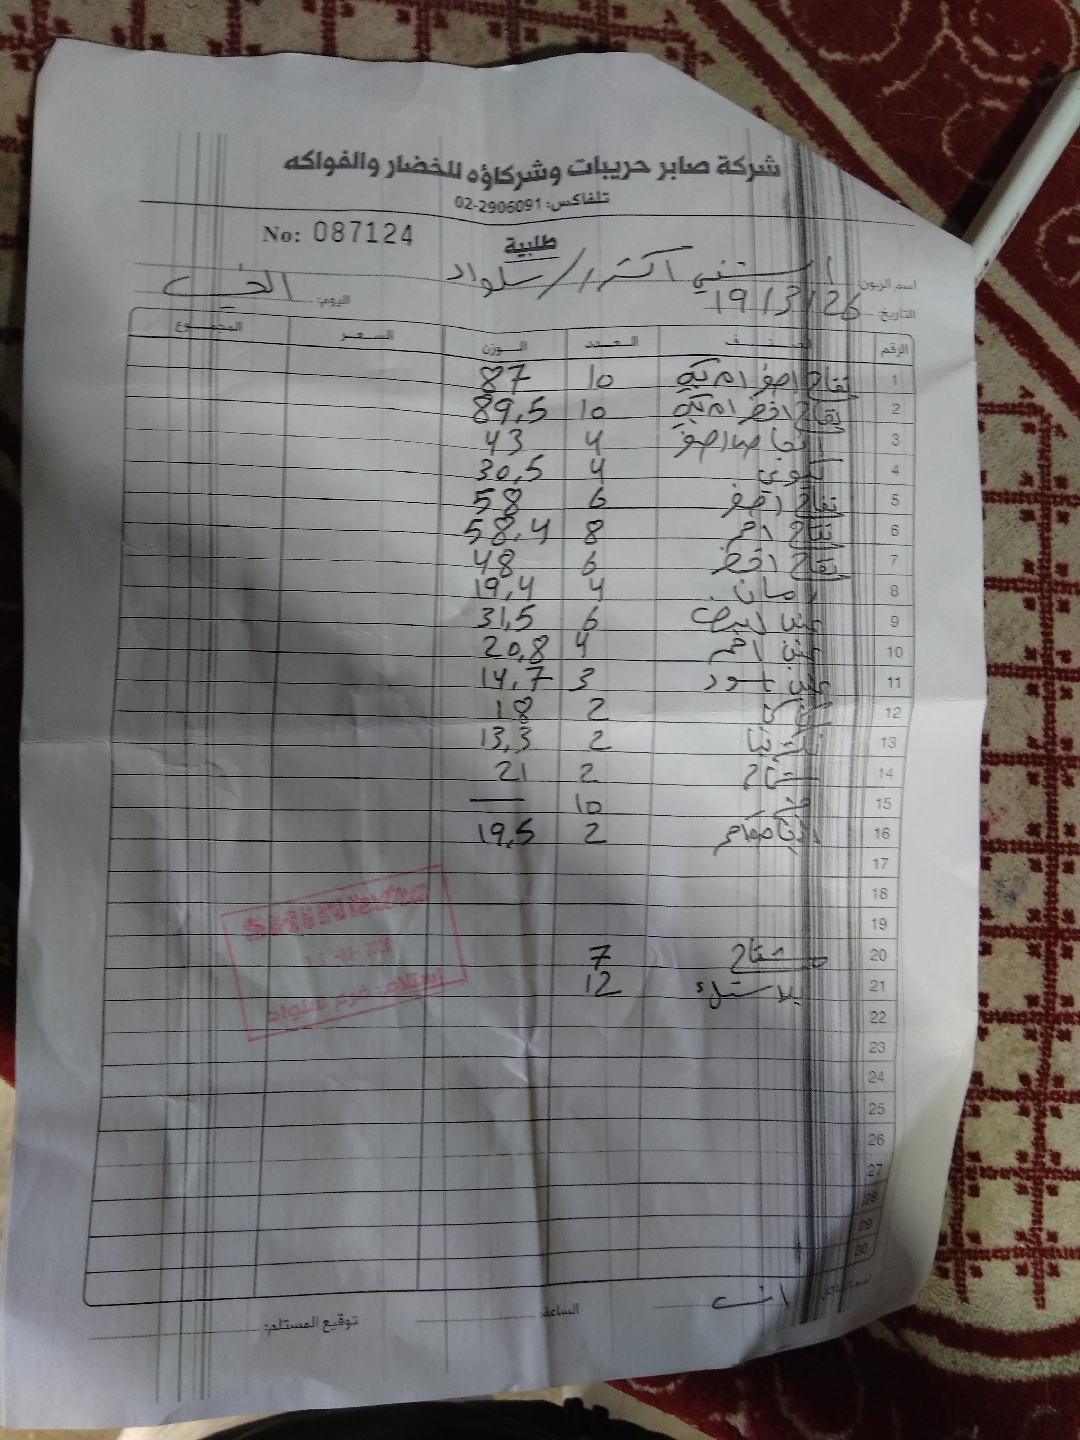 شركة صابر حريبات وشركاؤه للخضار والفواكه
تلفاكس: 02-2906091
No: 087124
طلبية
اسم الزبون: السني اكسترا / سلواد
التاريخ: 19/3/26 اليوم:
الرقم الصنف العدد الوزن السعر المجموع
1 تفاح اصفر 10 87
2 تفاح اخضر 10 89,5
3 اصفر 4 43
4 4 30,5
5 تفاح اصفر 6 58
6 تفاح احمر 8 58,4
7 تفاح اخضر 6 48
8 رمان 4 19,4
9 عنب ابيض 6 31,5
10 عنب احمر 4 20,8
11 عنب اسود 3 14,7
12 2 18
13 2 13,3
14 2 21
15 10 —
16 2 19,5
17
18
19
20 مشتاح 7
21 بلاستيك 12
22
23
24
25
26
27
28
29
30
استلام: فرع سلواد
الساعة:
توقيع المستلم: